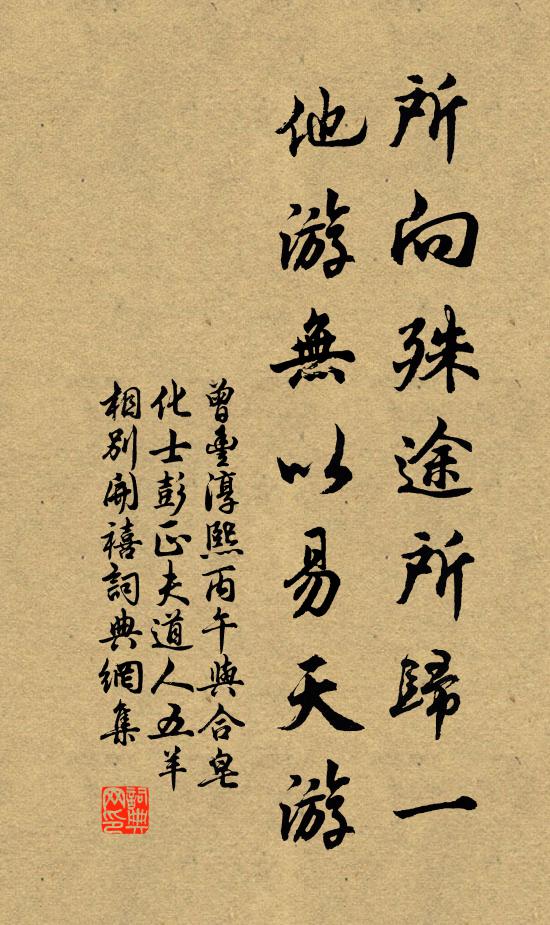 所向殊途所歸一
他游無以易天游
曾豐淳熙丙午與合皂
化士彭正夫道人五羊
相別開禧詞典網集
詞典網印